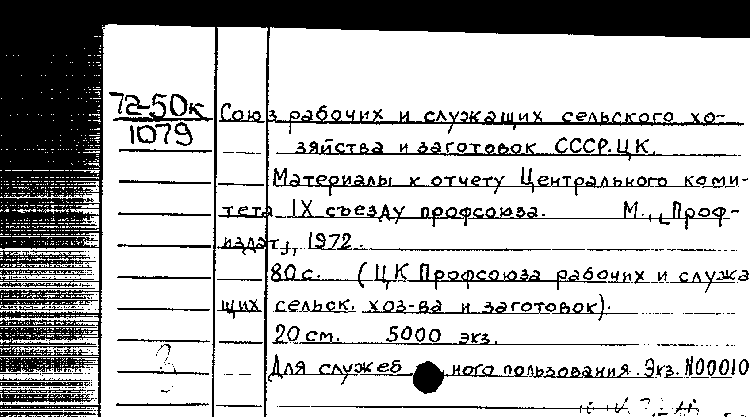 72-50к
1079
Союз рабочих и служащих сельского хо-
зяйства и заготовок СССР. ЦК.
Материалы к отчету Центрального коми-
тета IX съезду профсоюза. М., „Проф-
издат", 1972.
80 с. (ЦК Профсоюза рабочих и служа
щих сельск. хоз-ва и заготовок).
20 см. 5000 экз.
Для служебного пользования. Экз. N00010